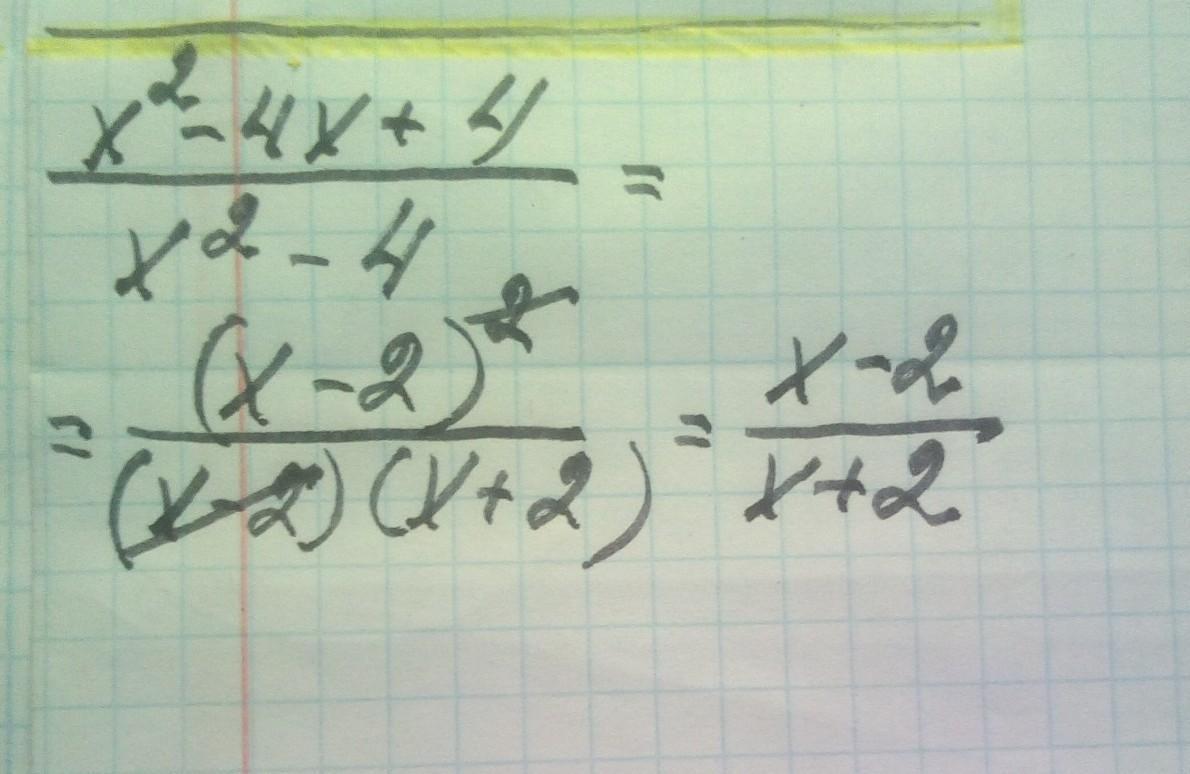 x² - 4x + 4 / x² - 4 =
= (x - 2)² / (x - 2)(x + 2) = x - 2 / x + 2